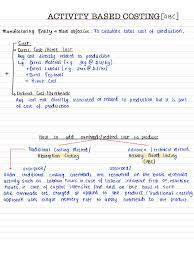 ACTIVITY BASED COSTING [ABC]
Manufacturing Entity → Main objective: To calculate total cost of production.
Cost
Direct Cost / Prime Cost
Any cost directly related to production
Eg: Direct Material (eg: 2kg @ $3/kg)
+ Direct Labour (eg: 2hr @ $4/hr)
+ Direct Expenses
= Prime Cost
Indirect Cost / Overheads
Any cost not directly associated to production but is a part of
cost of production.
How to add overheads/indirect cost to product
Traditional Costing Method
Absorption Costing
Advance / Technical Method
Activity Based Costing
(ABC)
Under traditional costing overheads are recovered on the basis of
activity such as labour hours in case of labour intensive firm or machine
hours in case of capital intensive firm and on the basis of
one overheads are charged to product. Traditional costing
approach uses single recovery rate to apply overheads to product